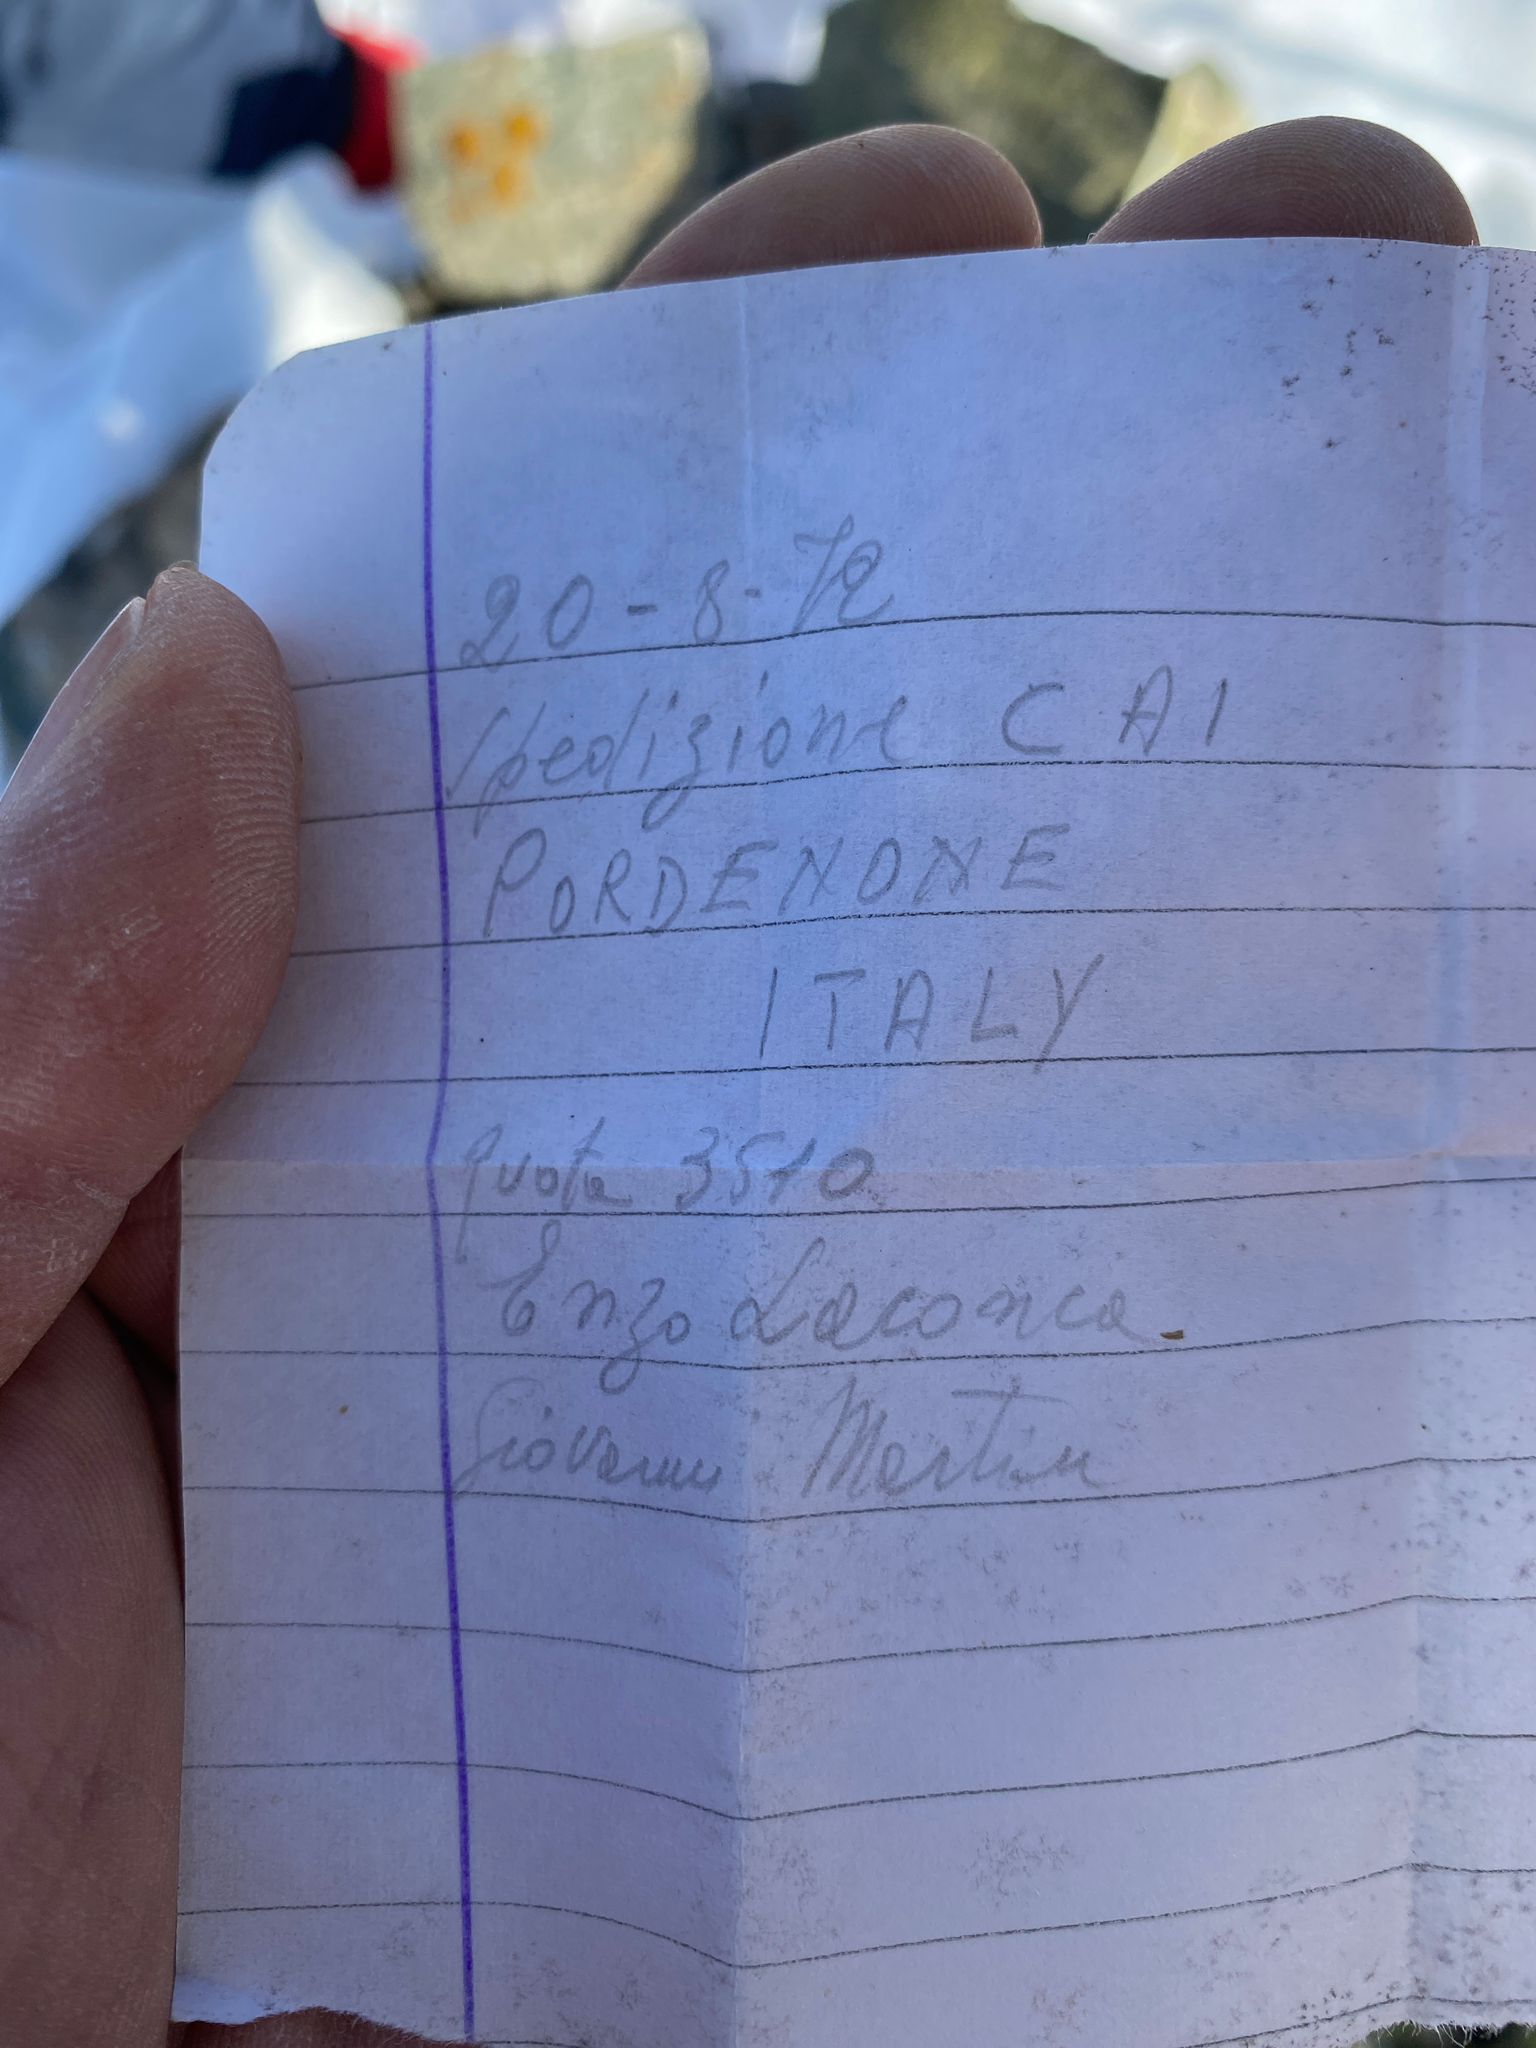 20-8-72
Spedizione CAI
PORDENONE
ITALY
quota 3510
Enzo Laconca
Giovanni Martin